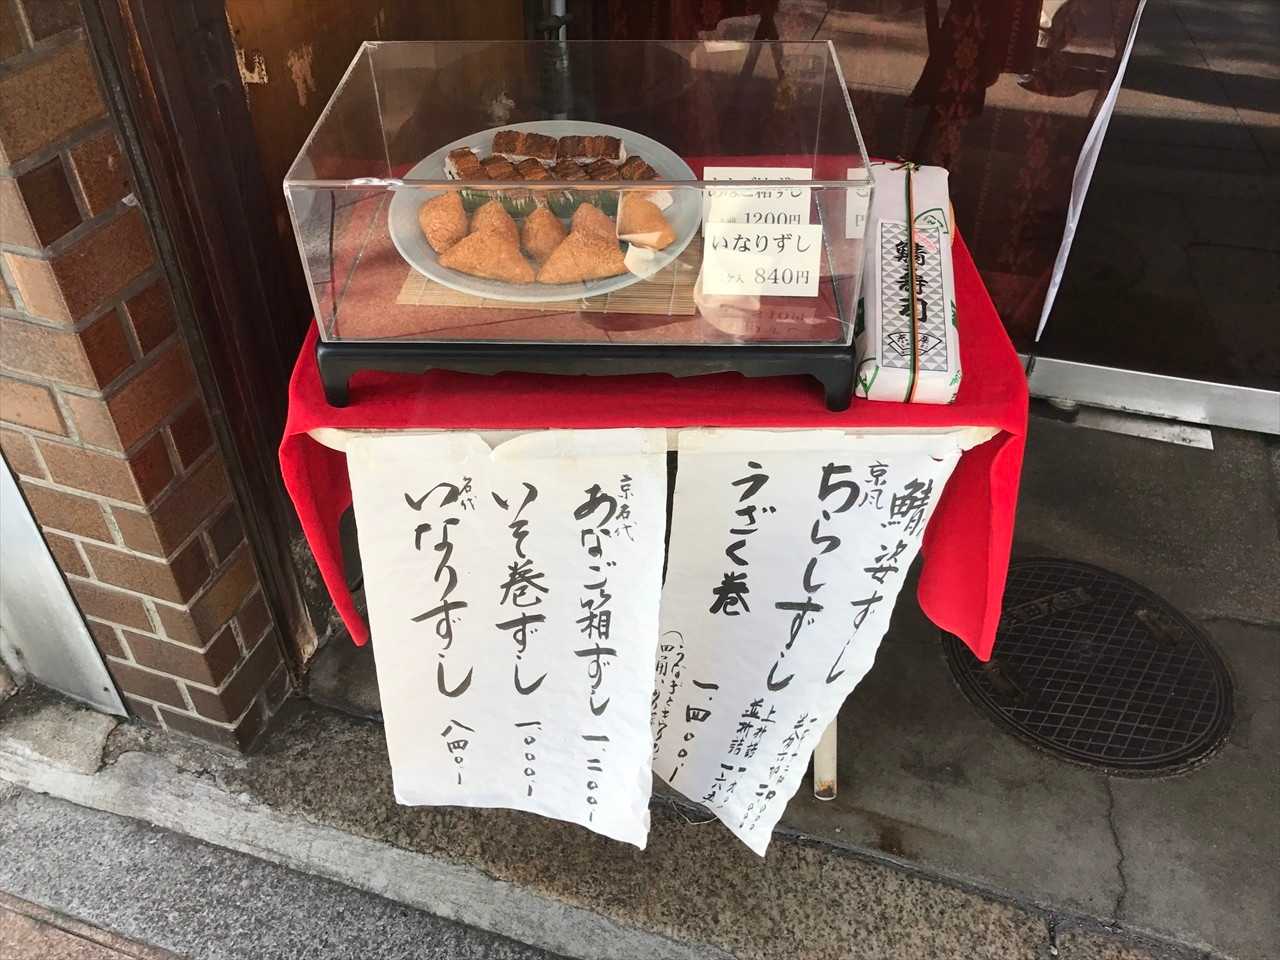 あなご箱ずし
1200円
いなりずし
ヶ入 840円
鯖寿司
鯖姿ずし
京風
ちらしずし
上折詰
並折詰
うざく巻
一、四〇〇、-
京名代
あなご箱ずし 一、二〇〇、-
いそ巻ずし 一、〇〇〇、-
名代
いなりずし 八四〇、-